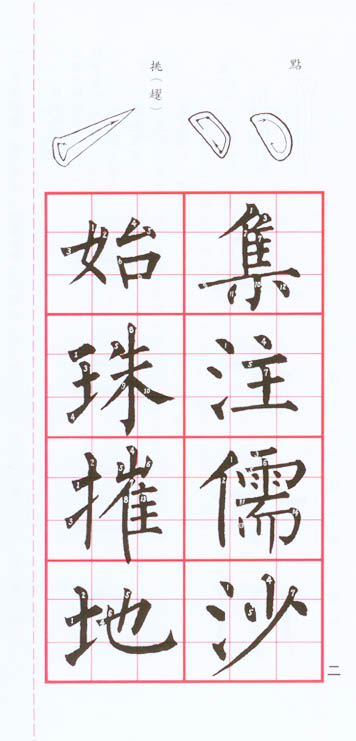 點
集注儒沙
挑（趯）
始珠摧地
二